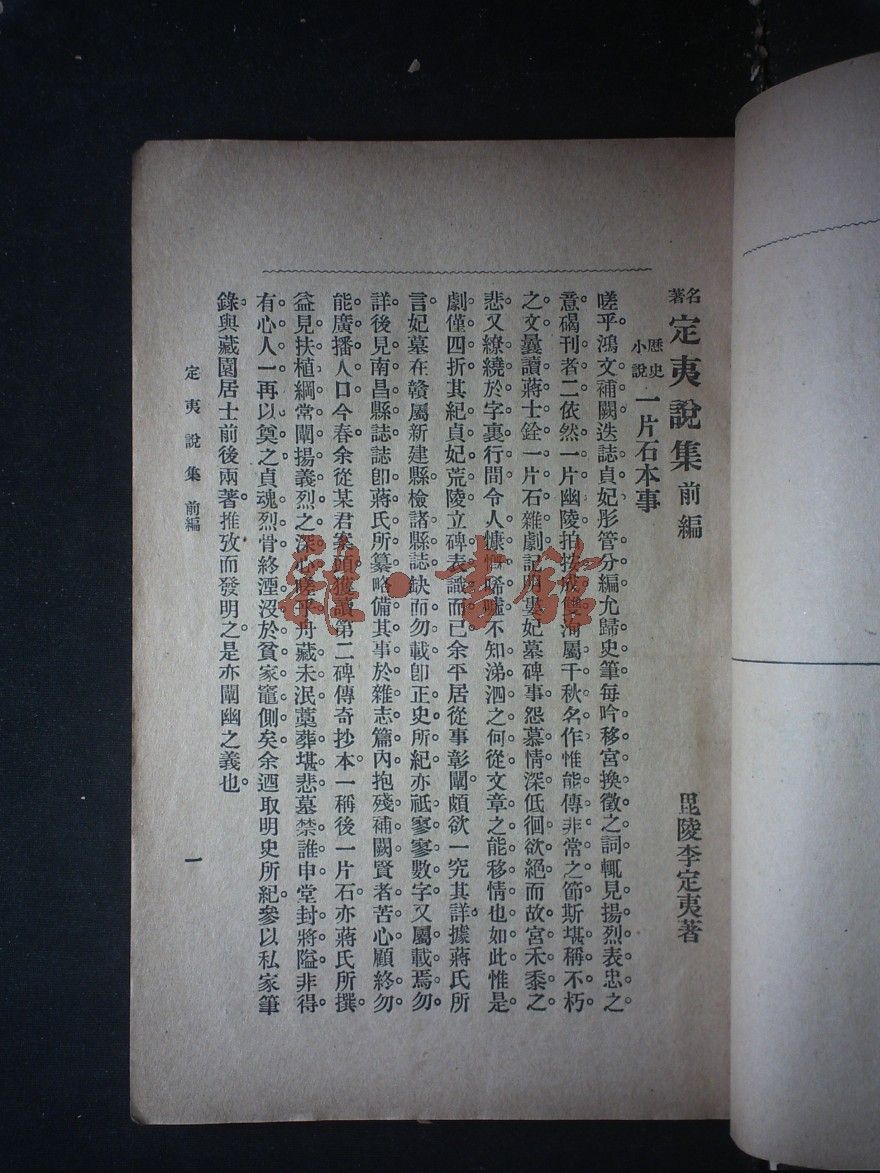 名著 定夷說集 前編
毘陵李定夷著
歷史小說 一片石本事
嗟乎。鴻文補闕。迭誌貞妃。彤管分編。允歸史筆。每吟移宮換徵之詞。輒見揚烈表忠之
意。碣刊者二。依然一片幽陵。拍按成雙。洵屬千秋名作。惟能傳非常之節。斯堪稱不朽
之文。曩讀蔣士銓一片石雜劇。記明婁妃墓碑事。怨慕情深。低徊欲絕。而故宮禾黍之
悲。又繚繞於字裏行間。令人慷慨唏噓。不知涕泗之何從。文章之能移情也如此。惟是
劇僅四折。其紀貞妃荒陵立碑表識而已。余平居從事彰闡。頗欲一究其詳。據蔣氏所
言。妃墓在贛屬新建縣。檢諸縣誌。缺而勿載。卽正史所紀。亦祗寥寥數字。又屬載焉勿
詳。後見南昌縣誌。誌卽蔣氏所纂。略備其事於雜志篇內。抱殘補闕。賢者苦心。顧終勿
能廣播人口。今春余從某君案頭。獲讀第二碑傳奇抄本。一稱後一片石。亦蔣氏所撰。
益見扶植綱常。闡揚義烈之深心。嗟乎。舟藏未泯。藁葬堪悲。墓禁誰申。堂封將隘。非得
有心人一再以奠之。貞魂烈骨。終湮沒於貧家竈側矣。余迺取明史所紀。參以私家筆
錄。與藏園居士前後兩著。推攷而發明之。是亦闡幽之義也。
定夷說集 前編
一
雜·書館